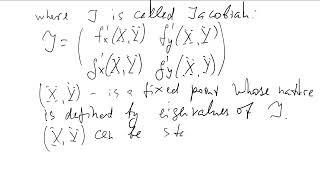 where J is called Jacobian:
J = ( f'x(Ẍ,Ÿ) f'y(Ẍ,Ÿ)
g'x(Ẍ,Ÿ) g'y(Ẍ,Ÿ) )
(Ẍ,Ÿ) - is a fixed point whose nature
is defined by eigenvalues of J.
(Ẍ,Ÿ) can be ste